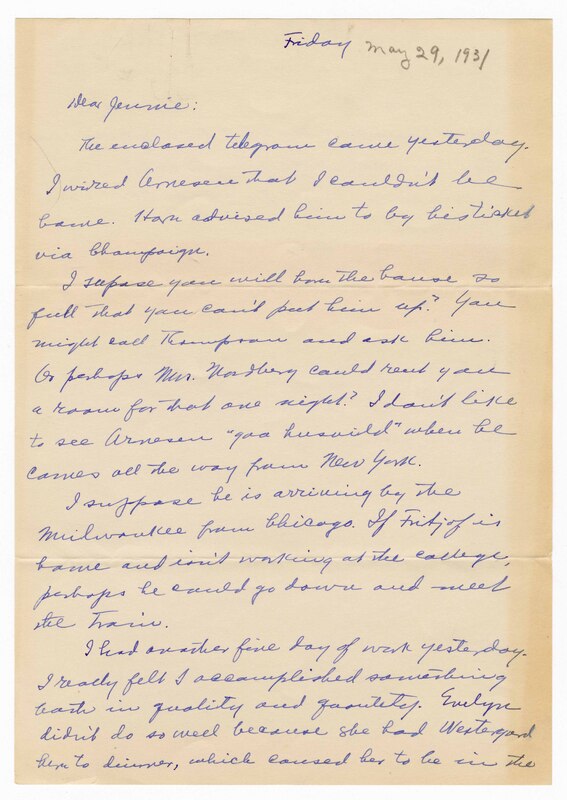 Friday May 29, 1931
Dear Jennie:
The enclosed telegram came yesterday.
I wired Arnesen that I couldn't be
home. Have advised him to by his ticket
via Champaign.
I supose you will have the house so
full that you can't put him up? You
might call Thompson and ask him.
Or perhaps Mrs. Nordberg could rent you
a room for that one night? I don't like
to see Arnesen "gaa husvild" when he
comes all the way from New York.
I suppose he is arriving by the
Milwaukee from Chicago. If Fritjof is
home and isn't working at the college,
perhaps he could go down and meet
the train.
I had another fine day of work yesterday.
I really felt I accomplished something
both in quality and quantety. Evelyn
didn't do so well because she had Westergard
here to dinner, which caused her to be in the